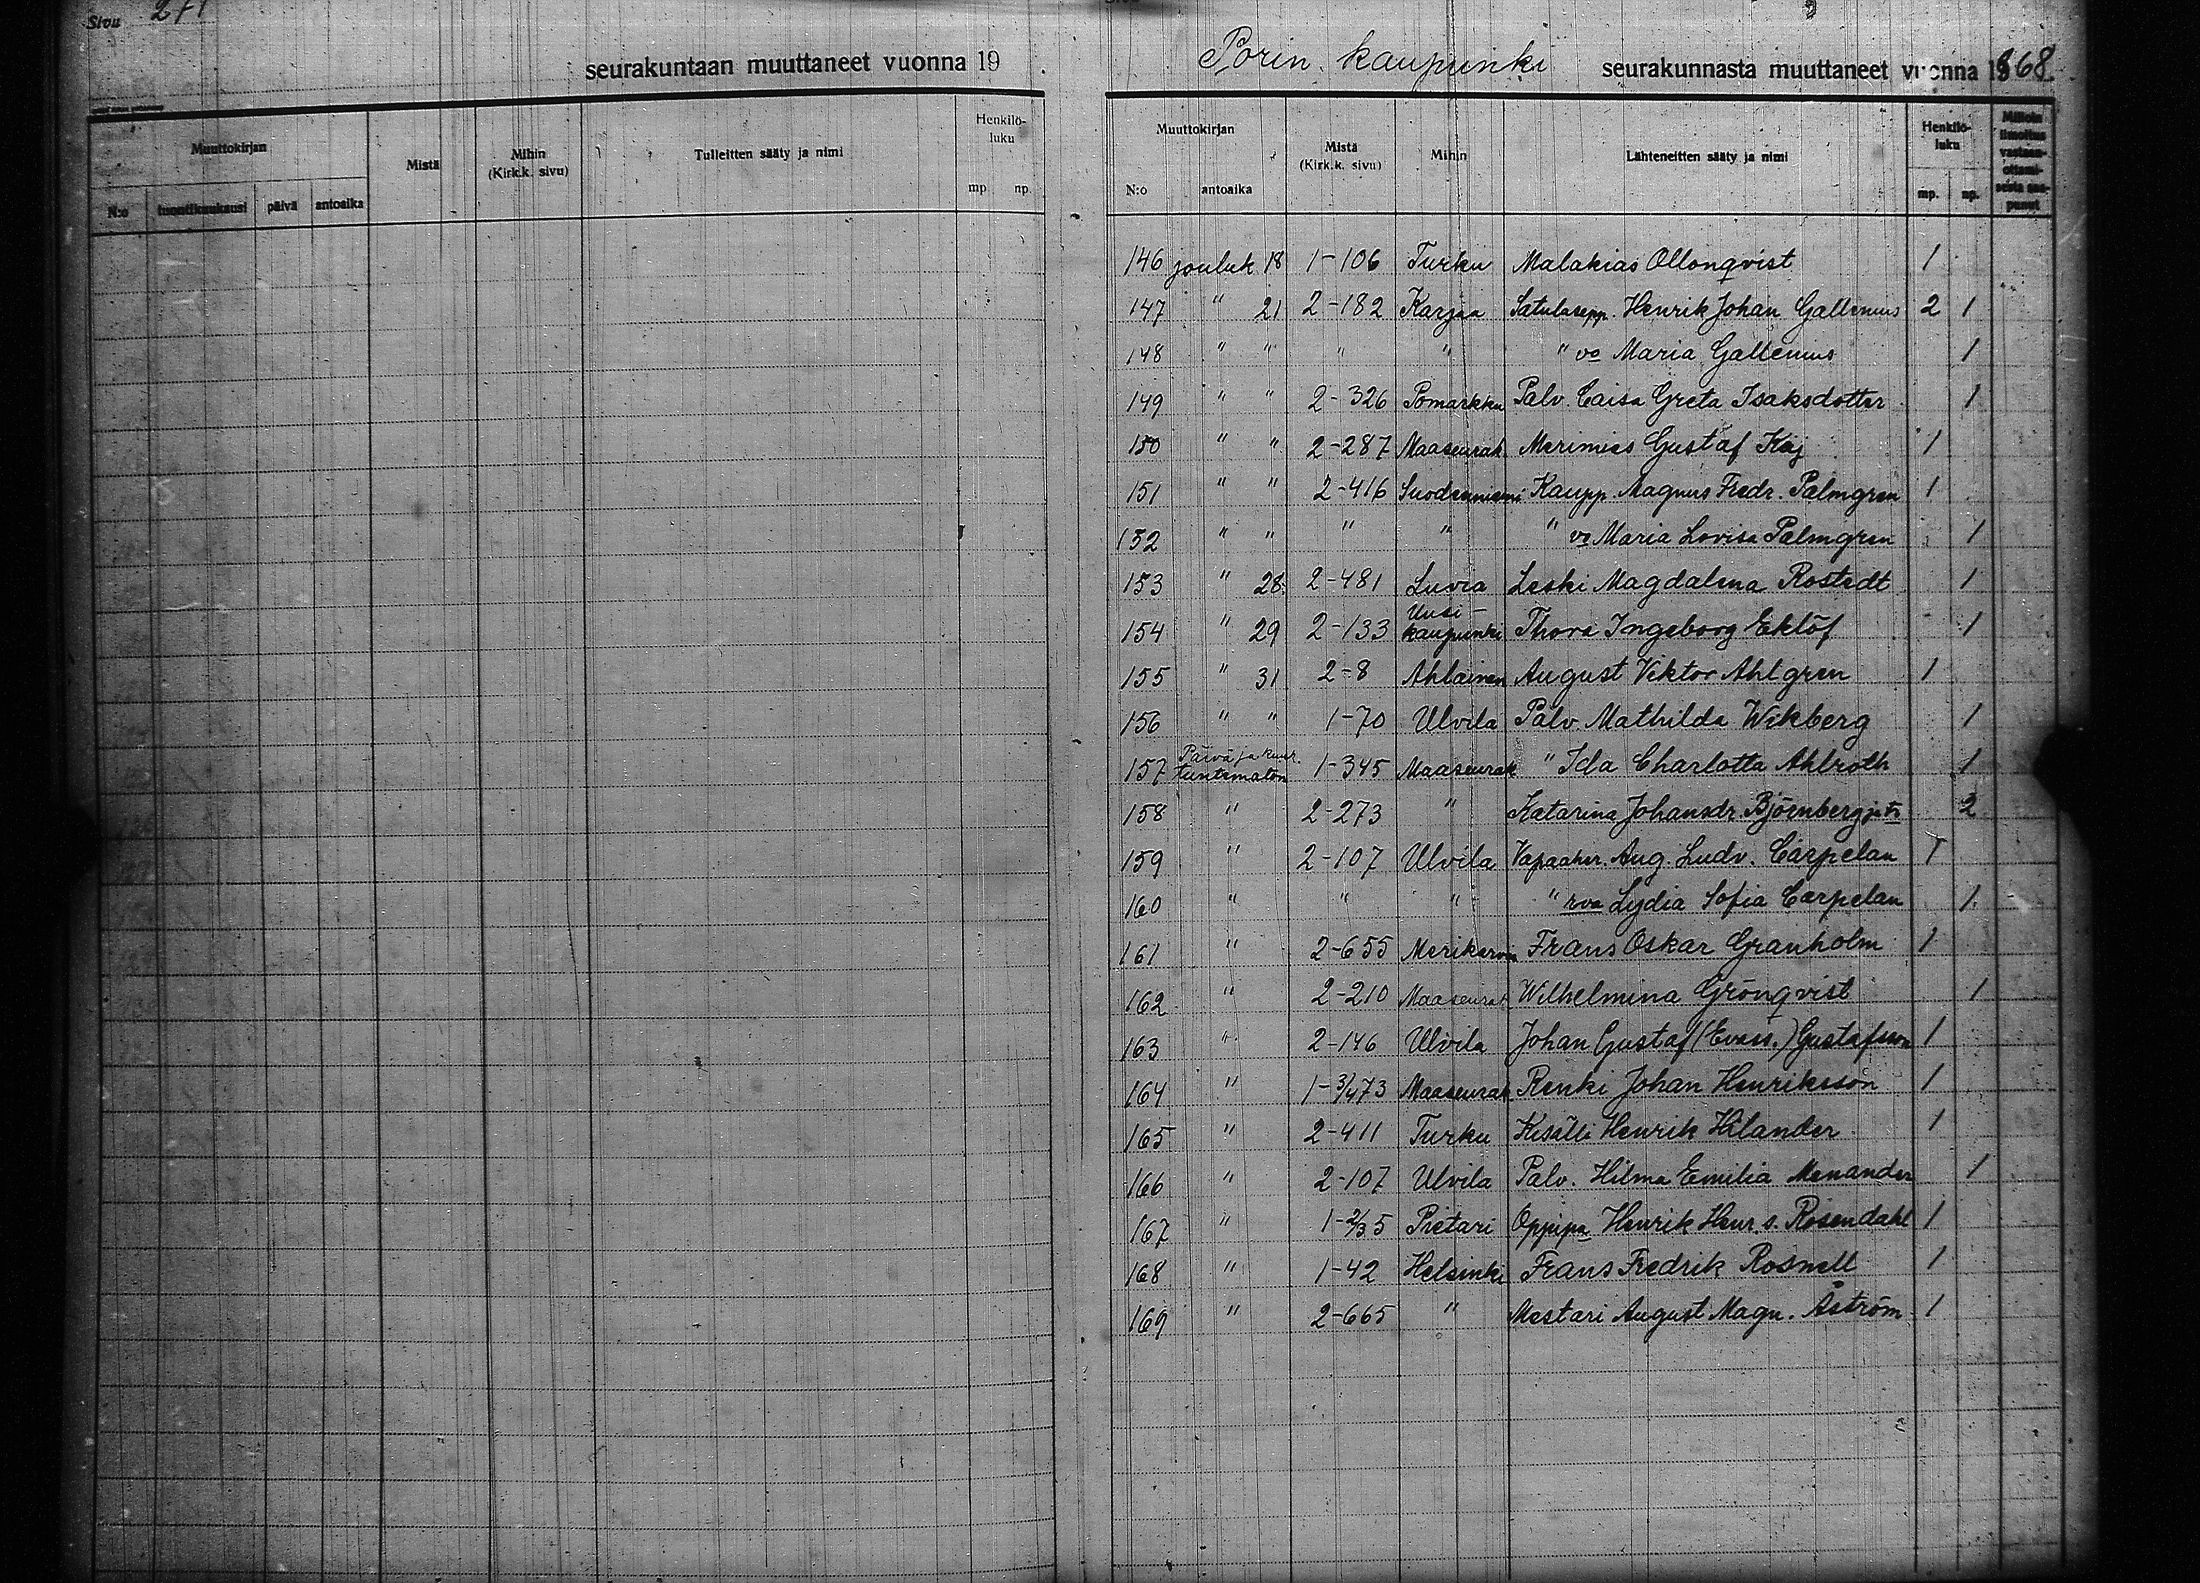 Sivu 271
seurakuntaan muuttaneet vuonna 19
Muuttokirjan
Mistä
Mihin
(Kirk.k. sivu)
Tulleitten sääty ja nimi
Henkilö-
luku
N:o tuontikuukausi päivä antoaika
mp np.
Porin kaupunki seurakunnasta muuttaneet vuonna 1868.
Muuttokirjan
Mistä
(Kirk.k. sivu)
Mihin
Lähteneitten sääty ja nimi
Henkilö-
luku
Milloin
ilmoitus
vastaan-
ottami-
sesta saa-
punut
N:o antoaika
mp. np.
146 jouluk. 18 1-106 Turku Malakias Ollonqvist 1
147 " 21 2-182 Karjaa Satulasepp. Henrik Johan Gallenius 2 1
148 " " " " " vo Maria Gallenius 1
149 " " 2-326 Pomarkku Palv. Caisa Greta Isaksdotter 1
150 " " 2-287 Maaseurak. Merimies Gustaf Kaj 1
151 " " 2-416 Suodenniemi Kaupp. Magnus Fredr. Palmgren 1
152 " " " " " vo Maria Lovisa Palmgren 1
153 " 28. 2-481 Luvia Leski Magdalena Rostedt 1
154 " 29 2-133 Uusi-
kaupunki Thora Ingeborg Eklöf 1
155 " 31 2-8 Ahlainen August Viktor Ahlgren 1
156 " " 1-70 Ulvila Palv. Mathilda Wikberg 1
157 Päivä ja kuuk.
tuntematon 1-345 Maaseurak " Ida Charlotta Ahlroth 1
158 " 2-273 " Katarina Johansdr. Björnberg ja tr 2
159 " 2-107 Ulvila Vapaaher. Aug. Ludv. Carpelan 1
160 " " " " rva Lydia Sofia Carpelan 1.
161 " 2-655 Merikarvia Frans Oskar Granholm 1
162 " 2-210 Maaseurak Wilhelmina Grönqvist 1
163 " 2-146 Ulvila Johan Gustaf (Evass.) Gustafsson 1
164 " 1-3/473 Maaseurak. Renki Johan Henriksson 1
165 " 2-411 Turku Kisälli Henrik Hilander 1
166 " 2-107 Ulvila Palv. Hilma Emilia Menander 1
167 " 1-2/35 Pietari Oppipa Henrik Henr.s. Rosendahl 1
168 " 1-42 Helsinki Frans Fredrik Rosnell 1
169 " 2-665 " Mestari August Magn. Åström 1